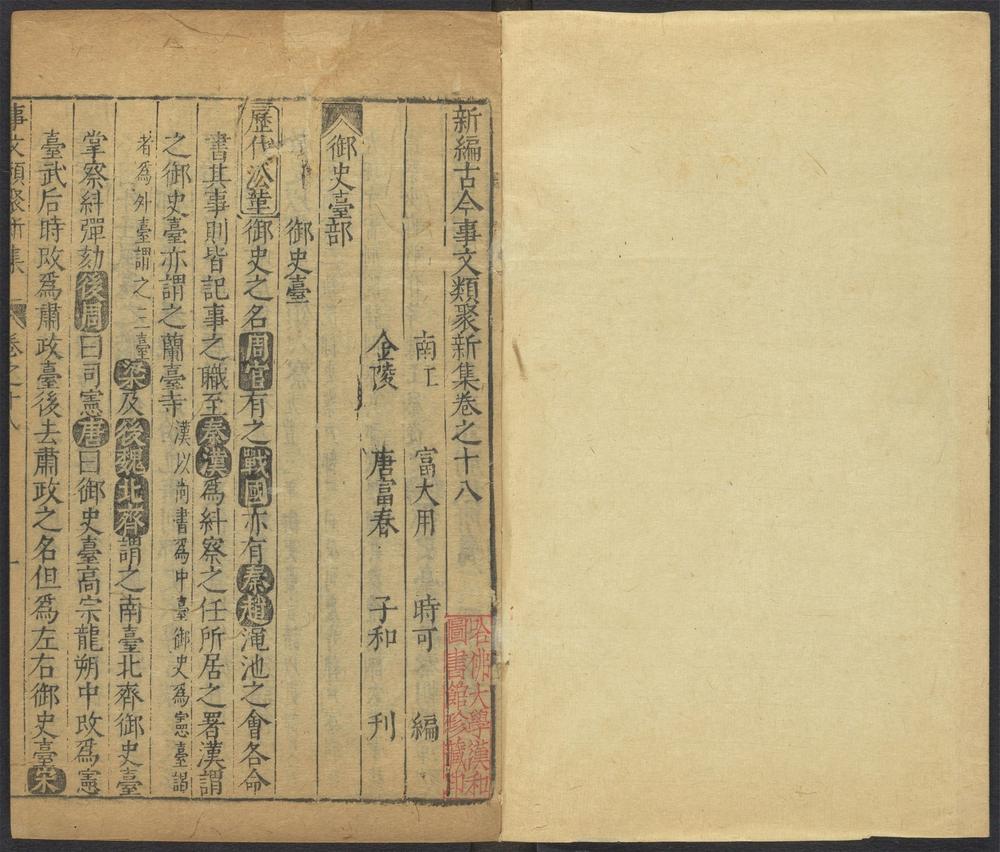 新編古今事文類聚新集卷之十八
南江 富大用 時可 編
金陵 唐富春 子和 刊
御史臺部
御史臺
歷代沿革御史之名周官有之戰國亦有秦趙澠池之會各命
書其事則皆記事之職至秦漢爲糾察之任所居之署漢謂
之御史臺亦謂之蘭臺寺漢以尚書爲中臺御史爲憲臺謁
者爲外臺謂之三臺梁及後魏北齊謂之南臺北齊御史臺
掌察糾彈劾後周曰司憲唐曰御史臺高宗龍朔中改爲憲
臺武后時改爲肅政臺後去肅政之名但爲左右御史臺宋
事文類聚新集 卷之十八 一
哈佛大學漢和
圖書館珍藏印